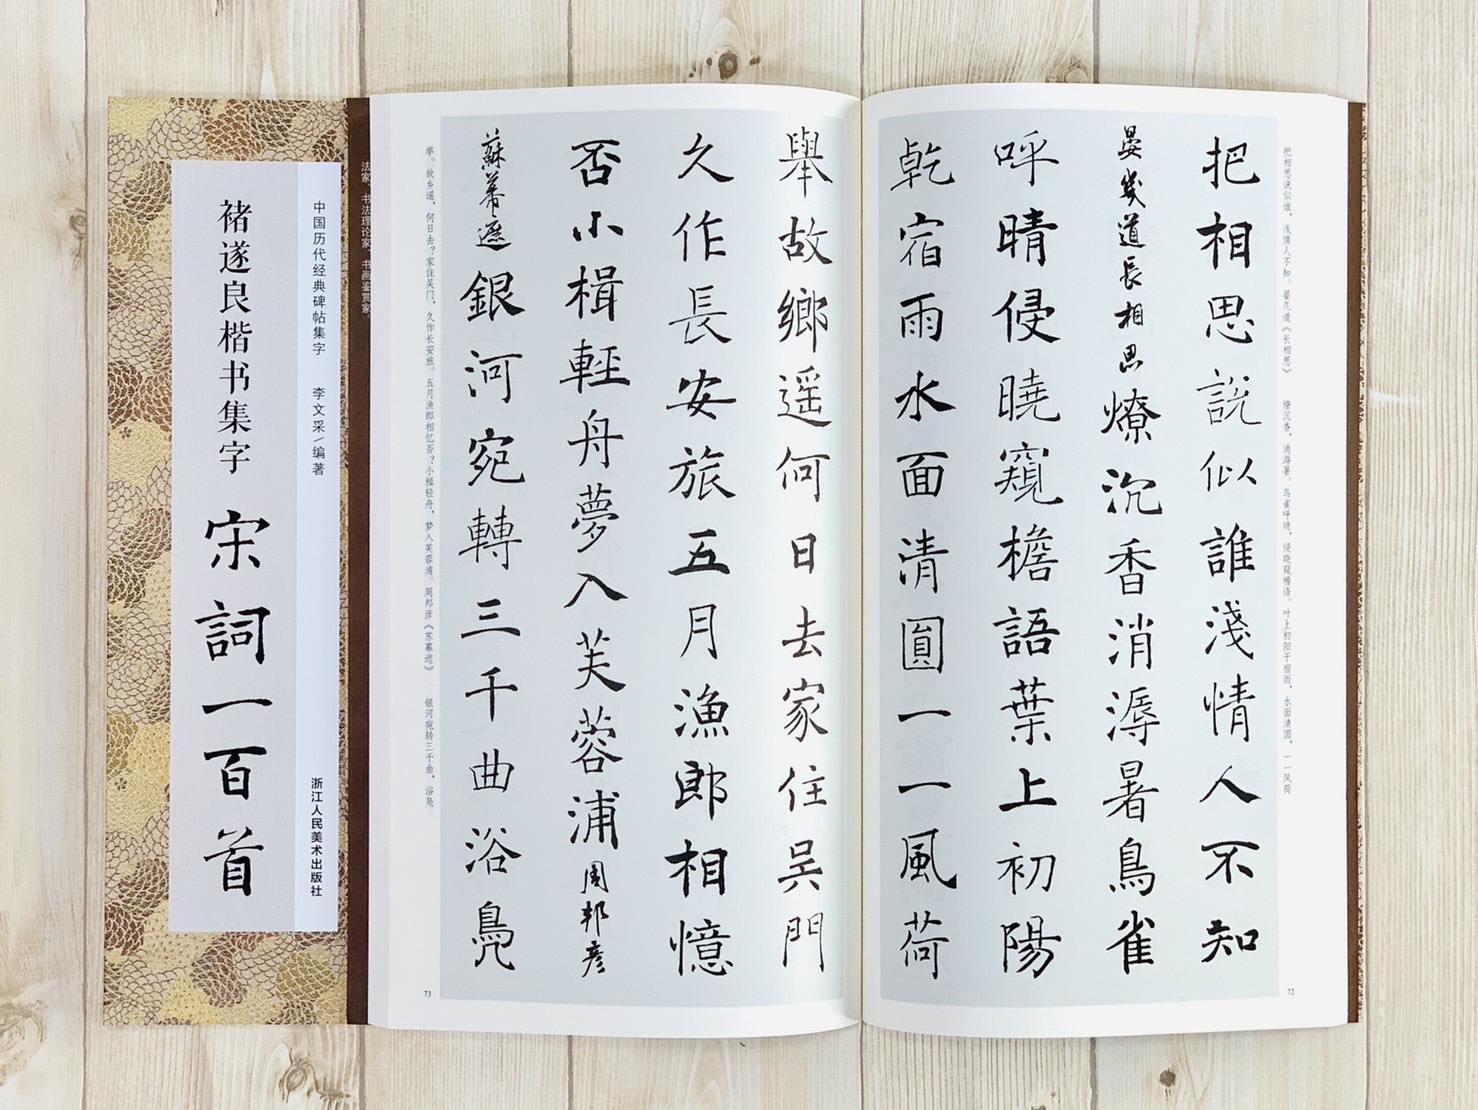 把相思说似谁，浅情人不知。晏几道《长相思》 燎沉香，消溽暑。鸟雀呼晴，侵晓窥檐语。叶上初阳干宿雨，水面清圆，一一风荷
把相思説似誰淺情人不知
晏幾道長相思燎沉香消溽暑鳥雀
呼晴侵曉窺檐語葉上初陽
乾宿雨水面清圓一一風荷
72
舉故鄉遥何日去家住吴門
久作長安旅五月漁郎相憶
否小楫輕舟夢入芙蓉浦周邦彦
蘇幕遮銀河宛轉三千曲浴鳧
举。故乡遥，何日去？家住吴门，久作长安旅。五月渔郎相忆否？小楫轻舟，梦入芙蓉浦。周邦彦《苏幕遮》 银河宛转三千曲，浴凫
73
法家、书法理论家、书画鉴赏家
中国历代经典碑帖集字 李文采/编著 浙江人民美术出版社
褚遂良楷书集字 宋詞一百首